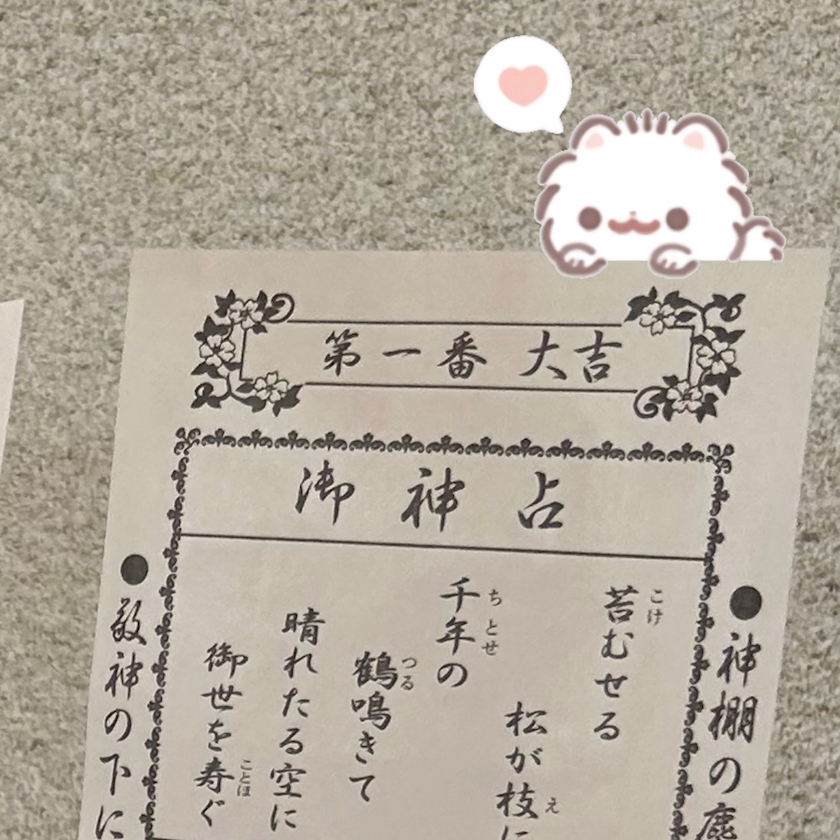 第一番 大吉
御神占
●神棚の
苔むせる
こけ
松が枝に
え
千年の
ちとせ
鶴鳴きて
つる
晴れたる空に
御世を寿ぐ
ことほ
●敬神の下に